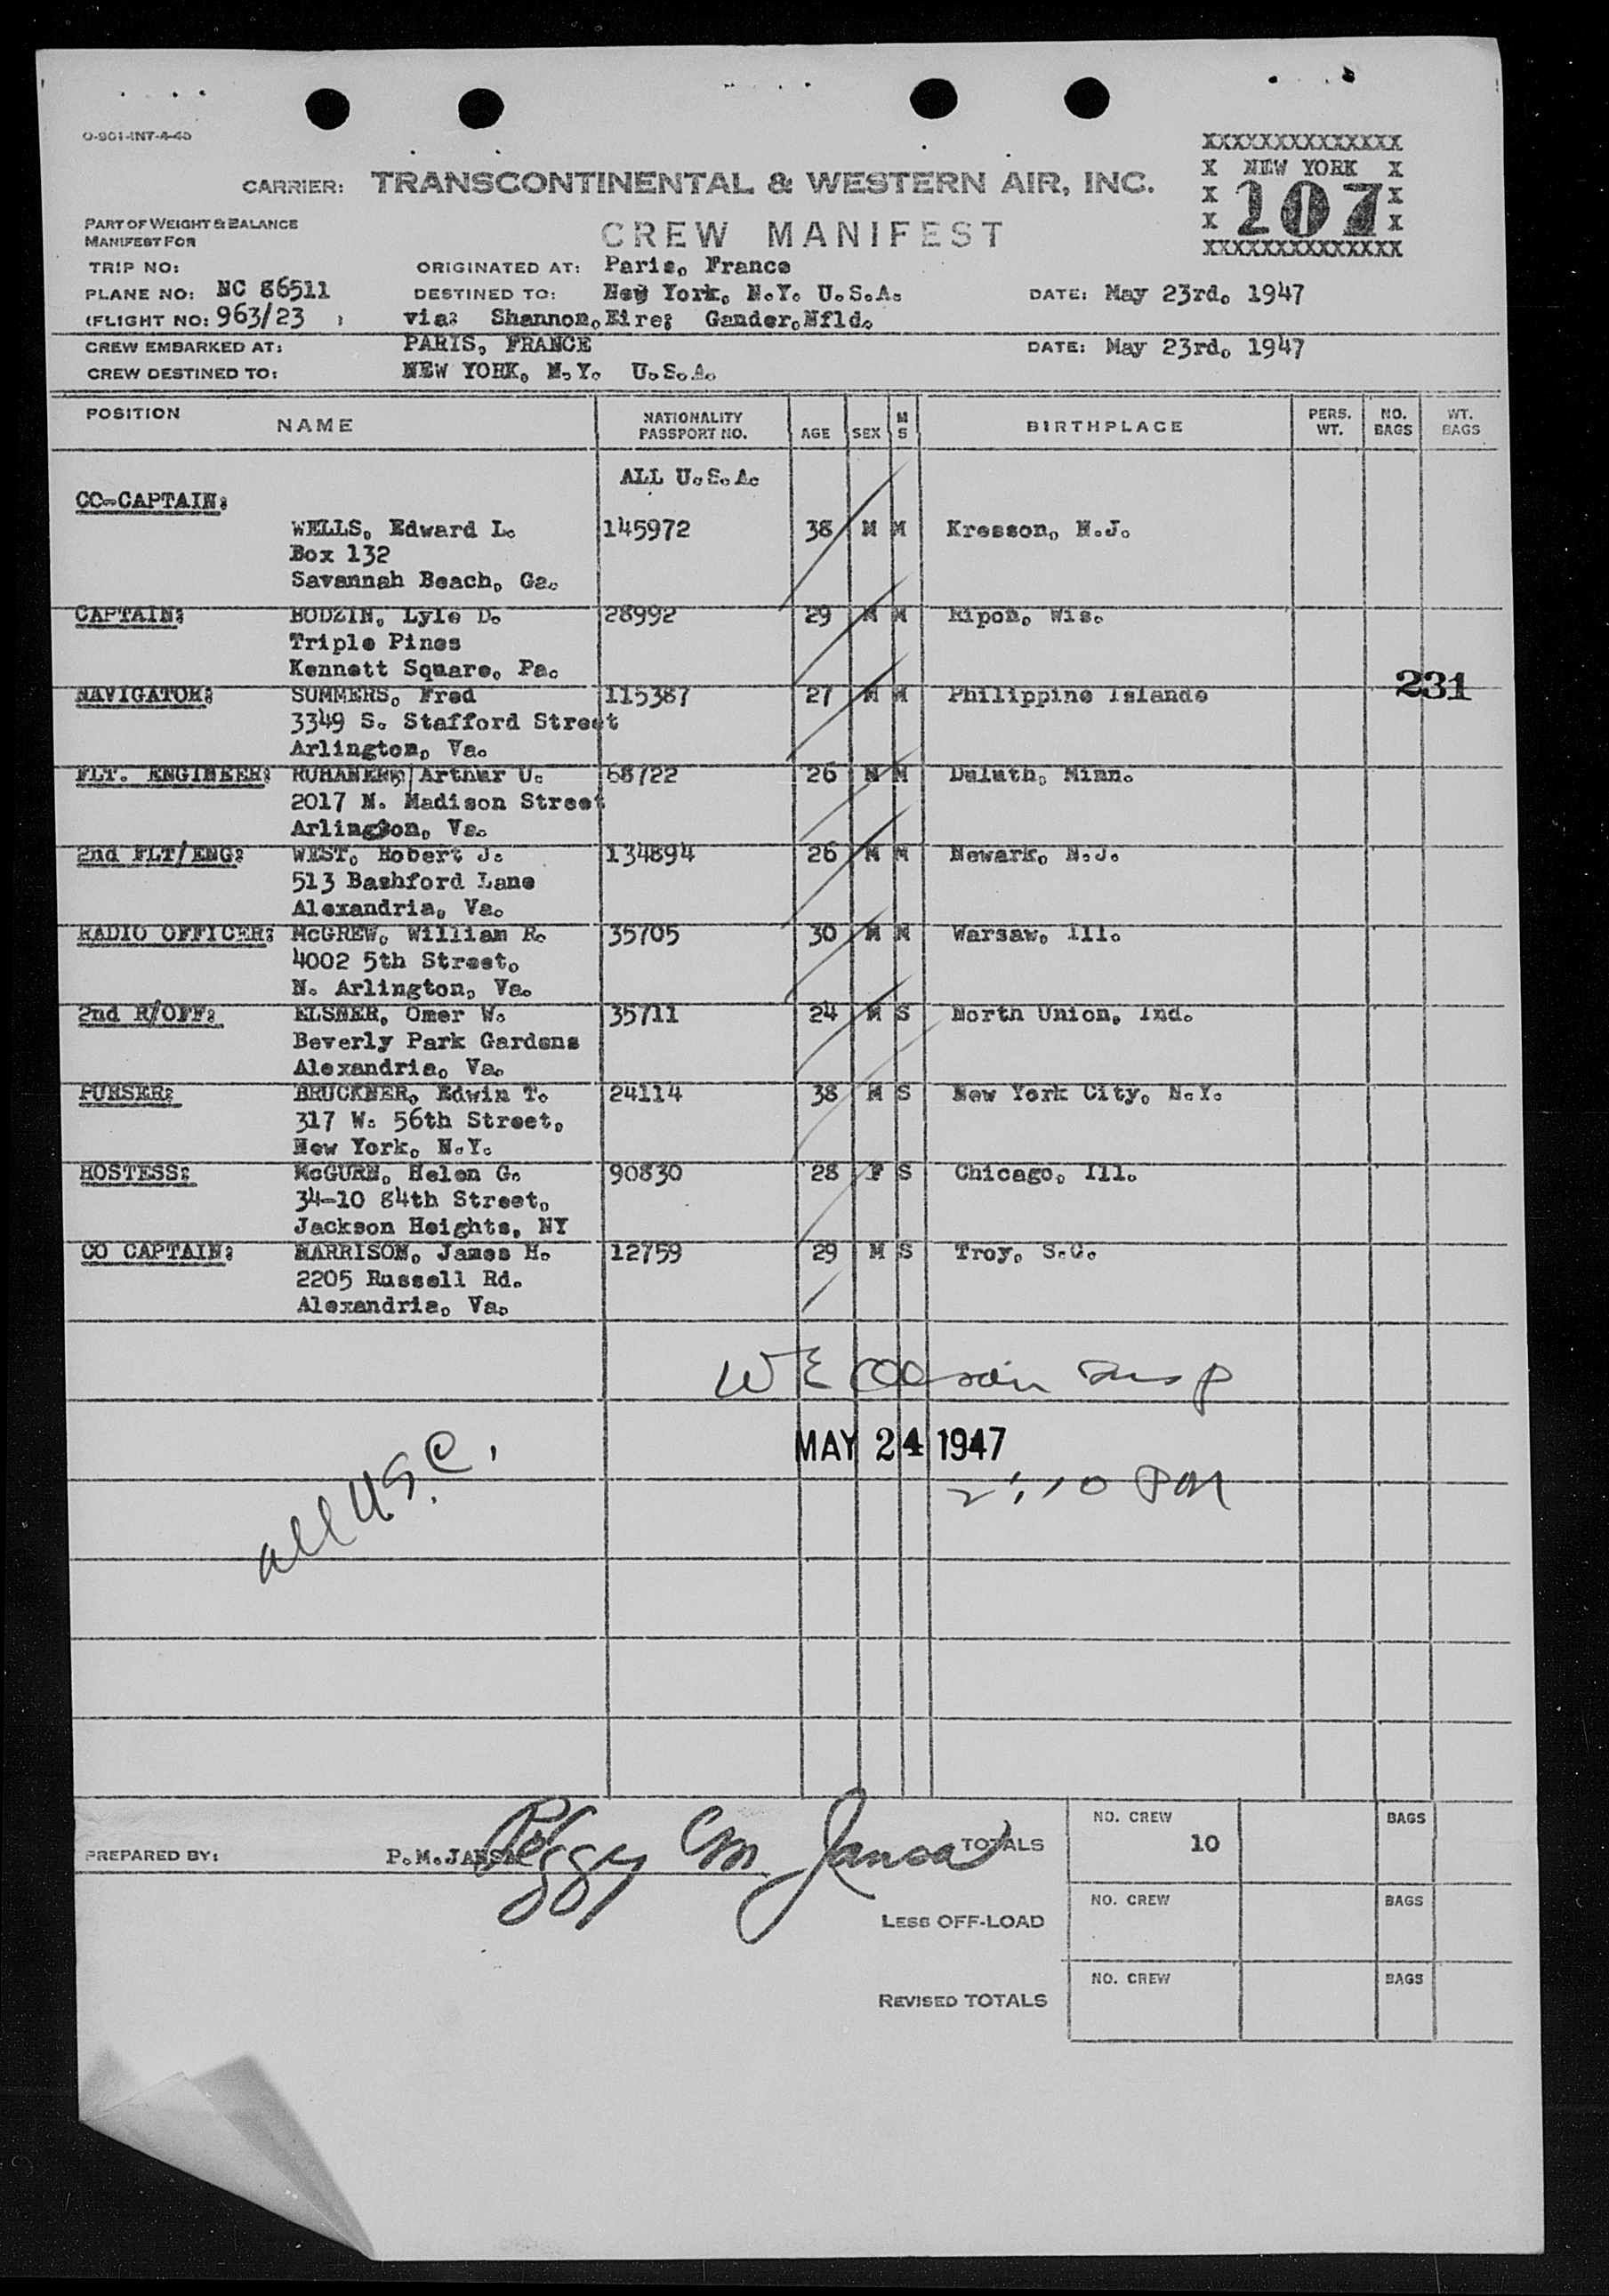 O-901-INT-4-45
CARRIER: TRANSCONTINENTAL & WESTERN AIR, INC.
XXXXXXXXXXXXXX
X NEW YORK X
X 207 X
X X
XXXXXXXXXXXXXX
PART OF WEIGHT & BALANCE
MANIFEST FOR
CREW MANIFEST
TRIP NO: ORIGINATED AT: Paris, France
PLANE NO: NC 86511 DESTINED TO: New York, N.Y. U.S.A. DATE: May 23rd. 1947
(FLIGHT NO: 963/23 ) via: Shannon, Eire; Gander, Nfld.
CREW EMBARKED AT: PARIS, FRANCE DATE: May 23rd. 1947
CREW DESTINED TO: NEW YORK, N.Y. U.S.A.
POSITION NAME NATIONALITY PASSPORT NO. AGE SEX M S BIRTHPLACE PERS. WT. NO. BAGS WT. BAGS
ALL U.S.A.
CO-CAPTAIN:
WELLS, Edward L. 145972 38 M M Kresson, N.J.
Box 132
Savannah Beach, Ga.
CAPTAIN: BODZIN, Lyle D. 28992 29 M M Ripon, Wis.
Triple Pines
Kennett Square, Pa.
231
NAVIGATOR: SUMMERS, Fred 115387 27 M M Philippine Islands
3349 S. Stafford Street
Arlington, Va.
FLT. ENGINEER: Arthur U. 68722 26 M M Duluth, Minn.
2017 N. Madison Street
Arlington, Va.
2nd FLT/ENG: WEST, Robert J. 134894 26 M M Newark, N.J.
513 Bashford Lane
Alexandria, Va.
RADIO OFFICER: McGREW, William R. 35705 30 M M Warsaw, Ill.
4002 5th Street,
N. Arlington, Va.
2nd R/OFF: ELSNER, Omer W. 35711 24 M S North Union, Ind.
Beverly Park Gardens
Alexandria, Va.
PURSER: BRUCKNER, Edwin T. 24114 38 M S New York City, N.Y.
317 W. 56th Street,
New York, N.Y.
HOSTESS: McGURN, Helen G. 90830 28 F S Chicago, Ill.
34-10 84th Street,
Jackson Heights, NY
CO CAPTAIN: HARRISON, James H. 12759 29 M S Troy, S.C.
2205 Russell Rd.
Alexandria, Va.
W E Insp
MAY 24 1947
2:10 PM
all U.S.C.
PREPARED BY: P.M.JANSA Peggy M Jansa
TOTALS NO. CREW 10 BAGS
LESS OFF-LOAD NO. CREW BAGS
REVISED TOTALS NO. CREW BAGS